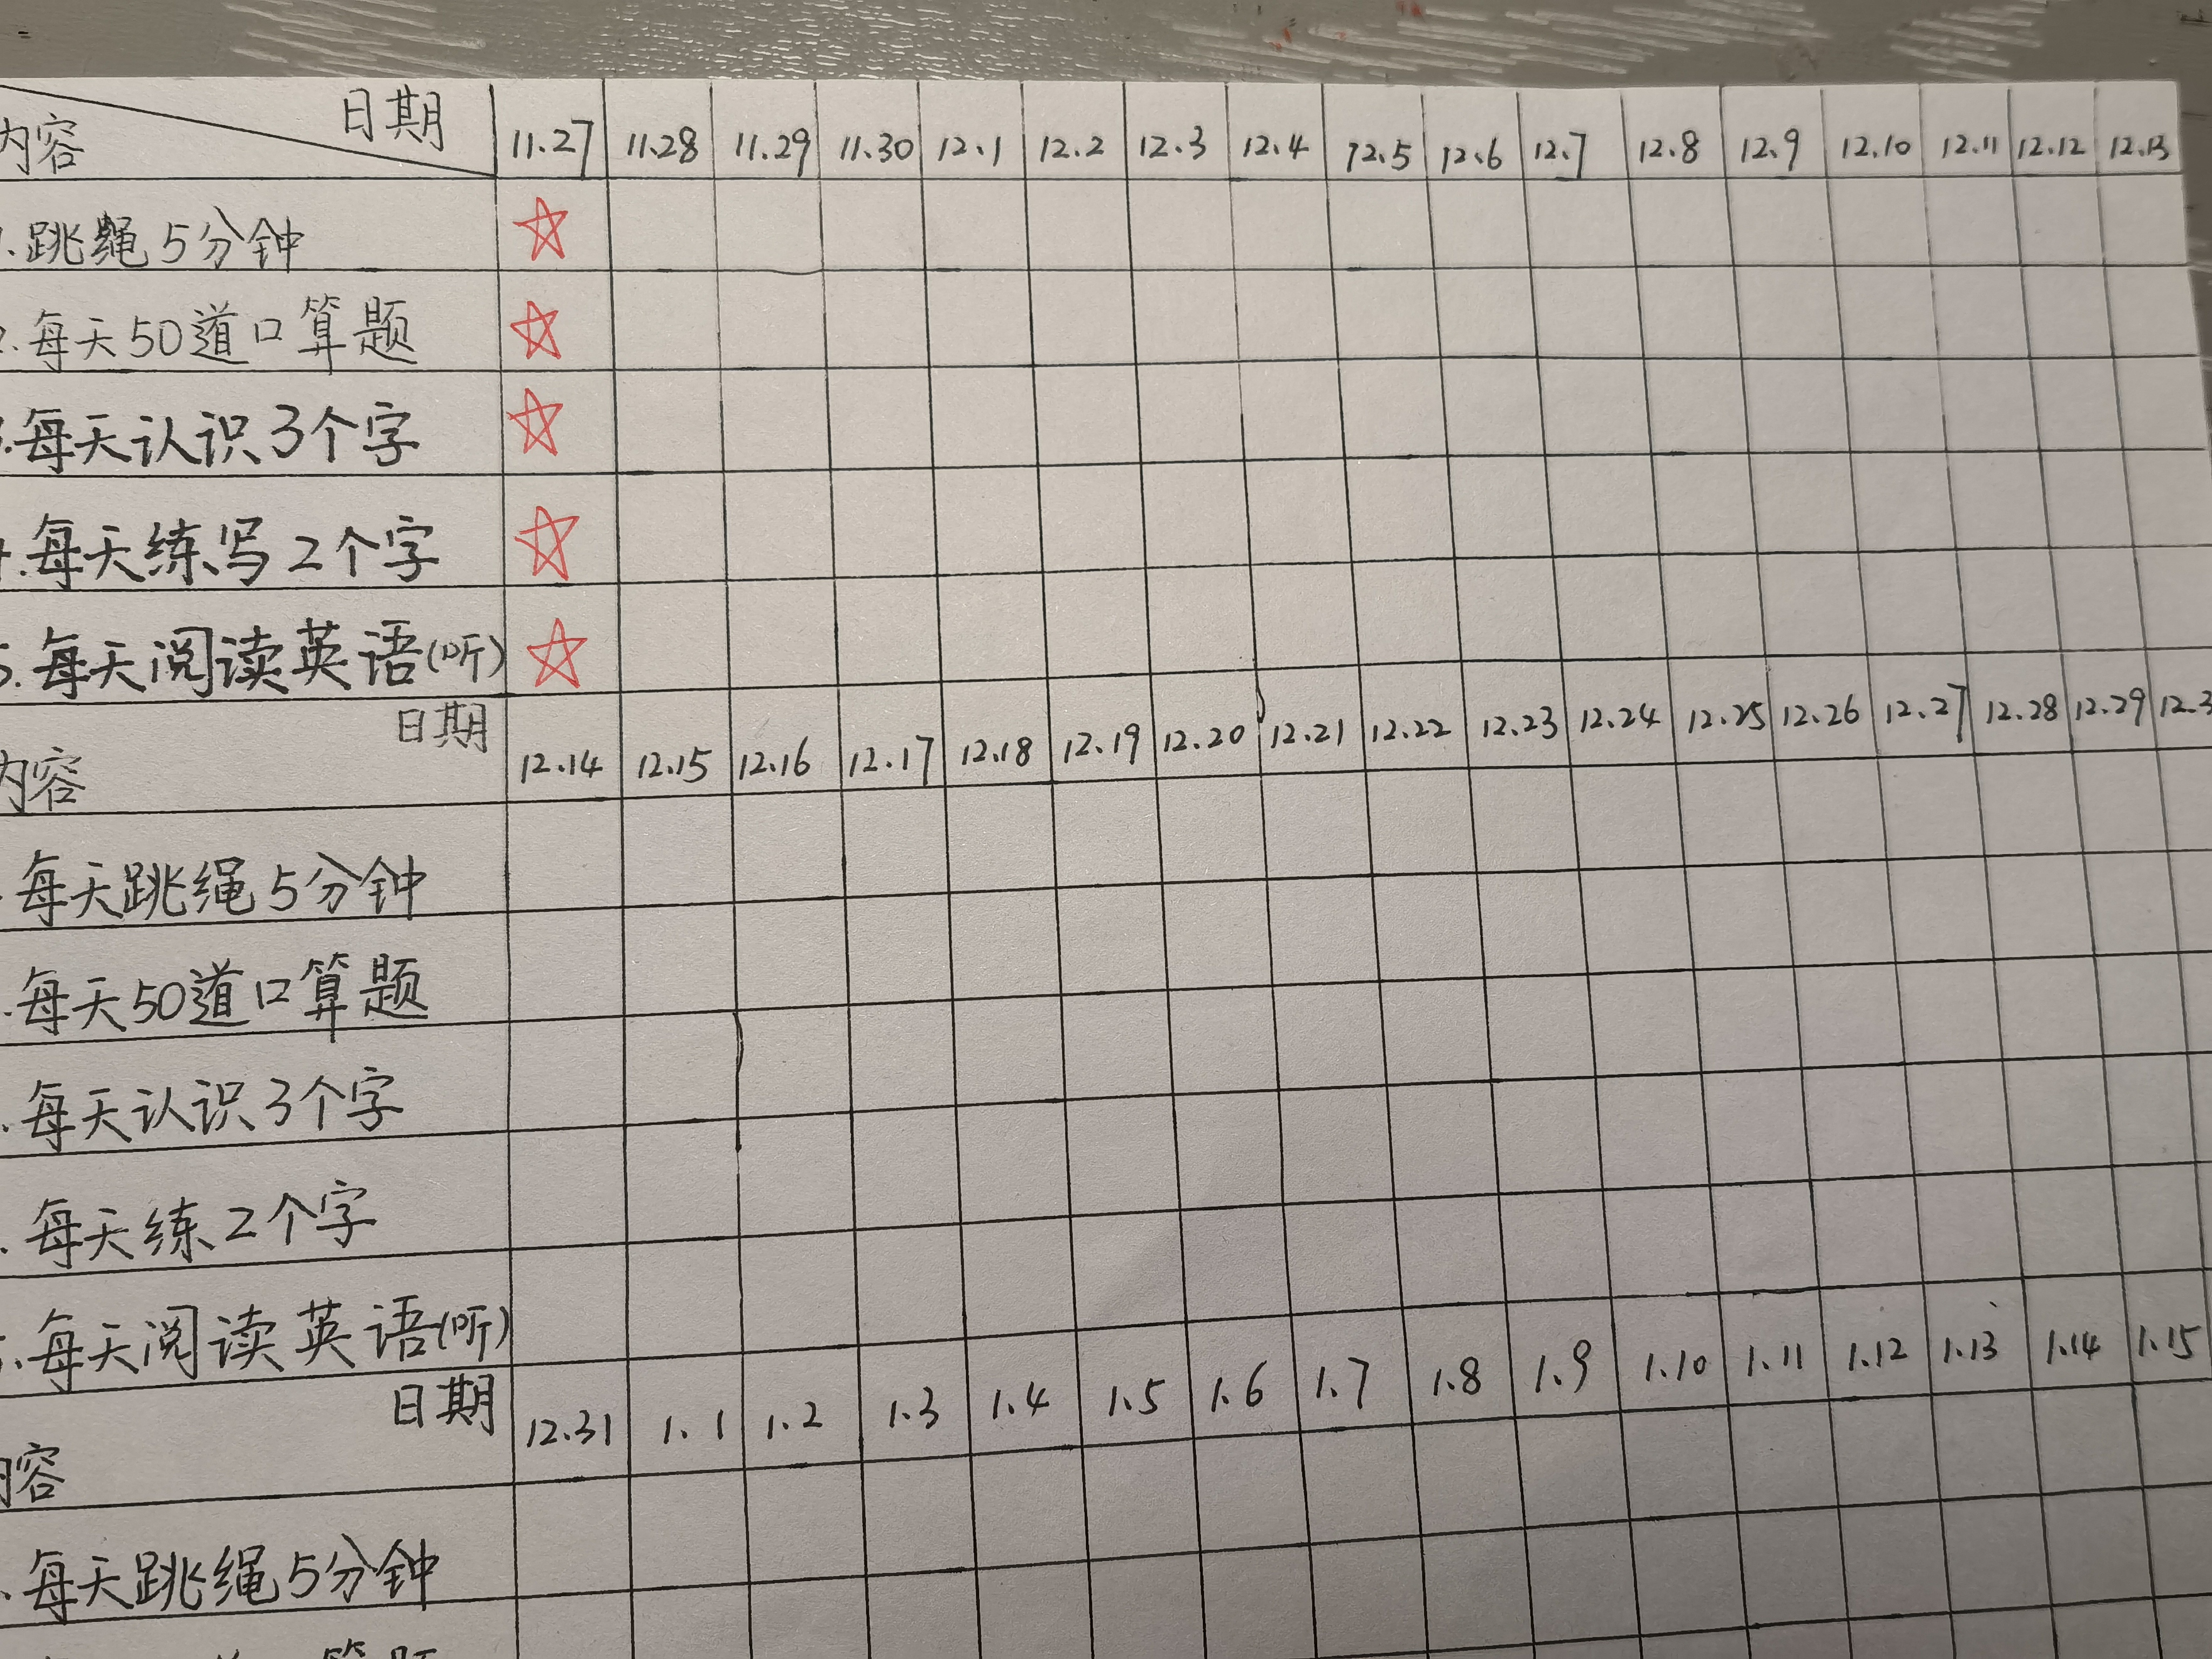 日期
内容 11.27 11.28 11.29 11.30 12.1 12.2 12.3 12.4 12.5 12.6 12.7 12.8 12.9 12.10 12.11 12.12 12.13
1.跳绳5分钟
2.每天50道口算题
3.每天认识3个字
4.每天练写2个字
5.每天阅读英语(听)
日期
内容 12.14 12.15 12.16 12.17 12.18 12.19 12.20 12.21 12.22 12.23 12.24 12.25 12.26 12.27 12.28 12.29 12.3
.每天跳绳5分钟
.每天50道口算题
.每天认识3个字
.每天练2个字
5.每天阅读英语(听)
日期
内容 12.31 1.1 1.2 1.3 1.4 1.5 1.6 1.7 1.8 1.9 1.10 1.11 1.12 1.13 1.14 1.15
.每天跳绳5分钟
算题